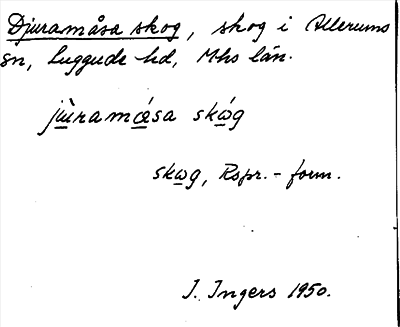 Djuramåsa skog, skog i Allerums
sn, Luggude hd, Mhs län.
jùramǻsa skóg
skog, Rspr.-form.
I. Ingers 1950.